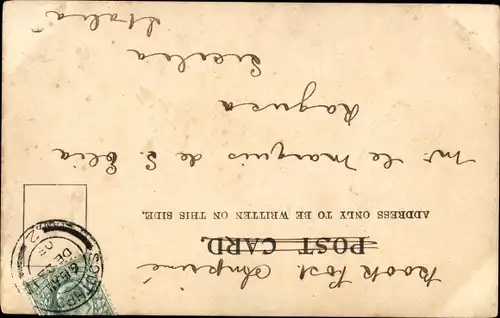 Book Post Imprimé
POST CARD.
ADDRESS ONLY TO BE WRITTEN ON THIS SIDE.
Mr. le Marquis de S. Elia
Ragusa
Sicilia
Italia
SOUTHPO
DE
05
2